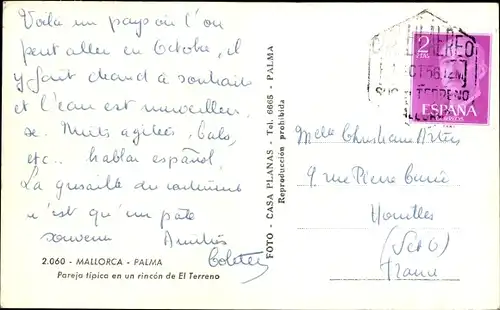 Voilà un pays où l'on
peut aller en Octobre, il
y fait chaud à souhait
et l'eau est merveilleu
se. Nuits agitées, bals,
etc.. hablar español.
La grisaille du continent
n'est qu'un pâle
souvenir Amitiés
2.060 - MALLORCA - PALMA
Pareja típica en un rincón de El Terreno
FOTO - CASA PLANAS - Tel. 6665 - PALMA
Reproducción prohibida
CORREO AEREO
OCT 56.12M
SUC. TERRENO
2
PTAS
ESPAÑA
CORREOS
Melle Christiane
9 rue Pierre Curie
Houilles
(S et O)
France